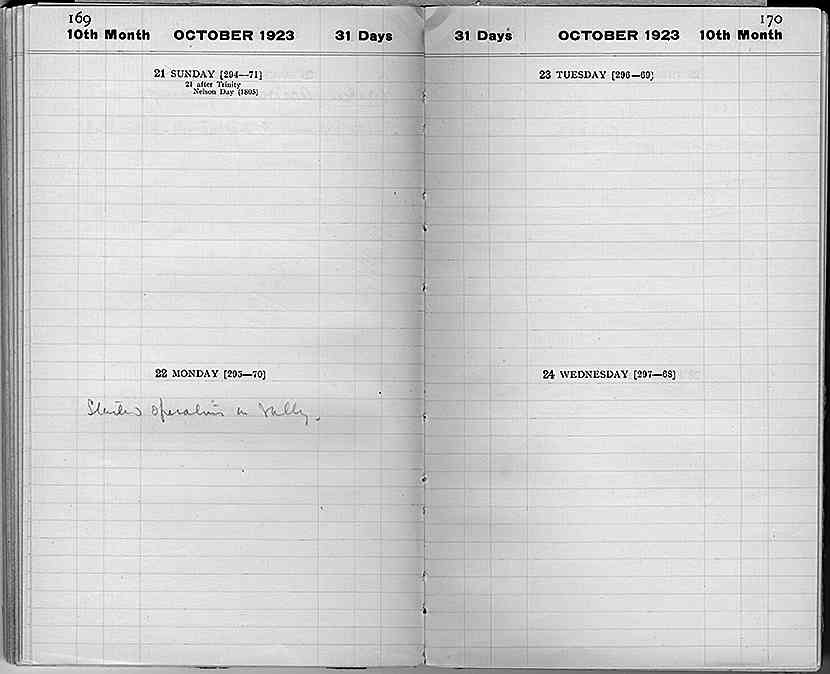 169
10th Month OCTOBER 1923 31 Days
21 SUNDAY [294—71]
21 after Trinity
Nelson Day (1805)
22 MONDAY [295—70]
Started operations in Valley.
170
31 Days OCTOBER 1923 10th Month
23 TUESDAY [296—69]
24 WEDNESDAY [297—68]